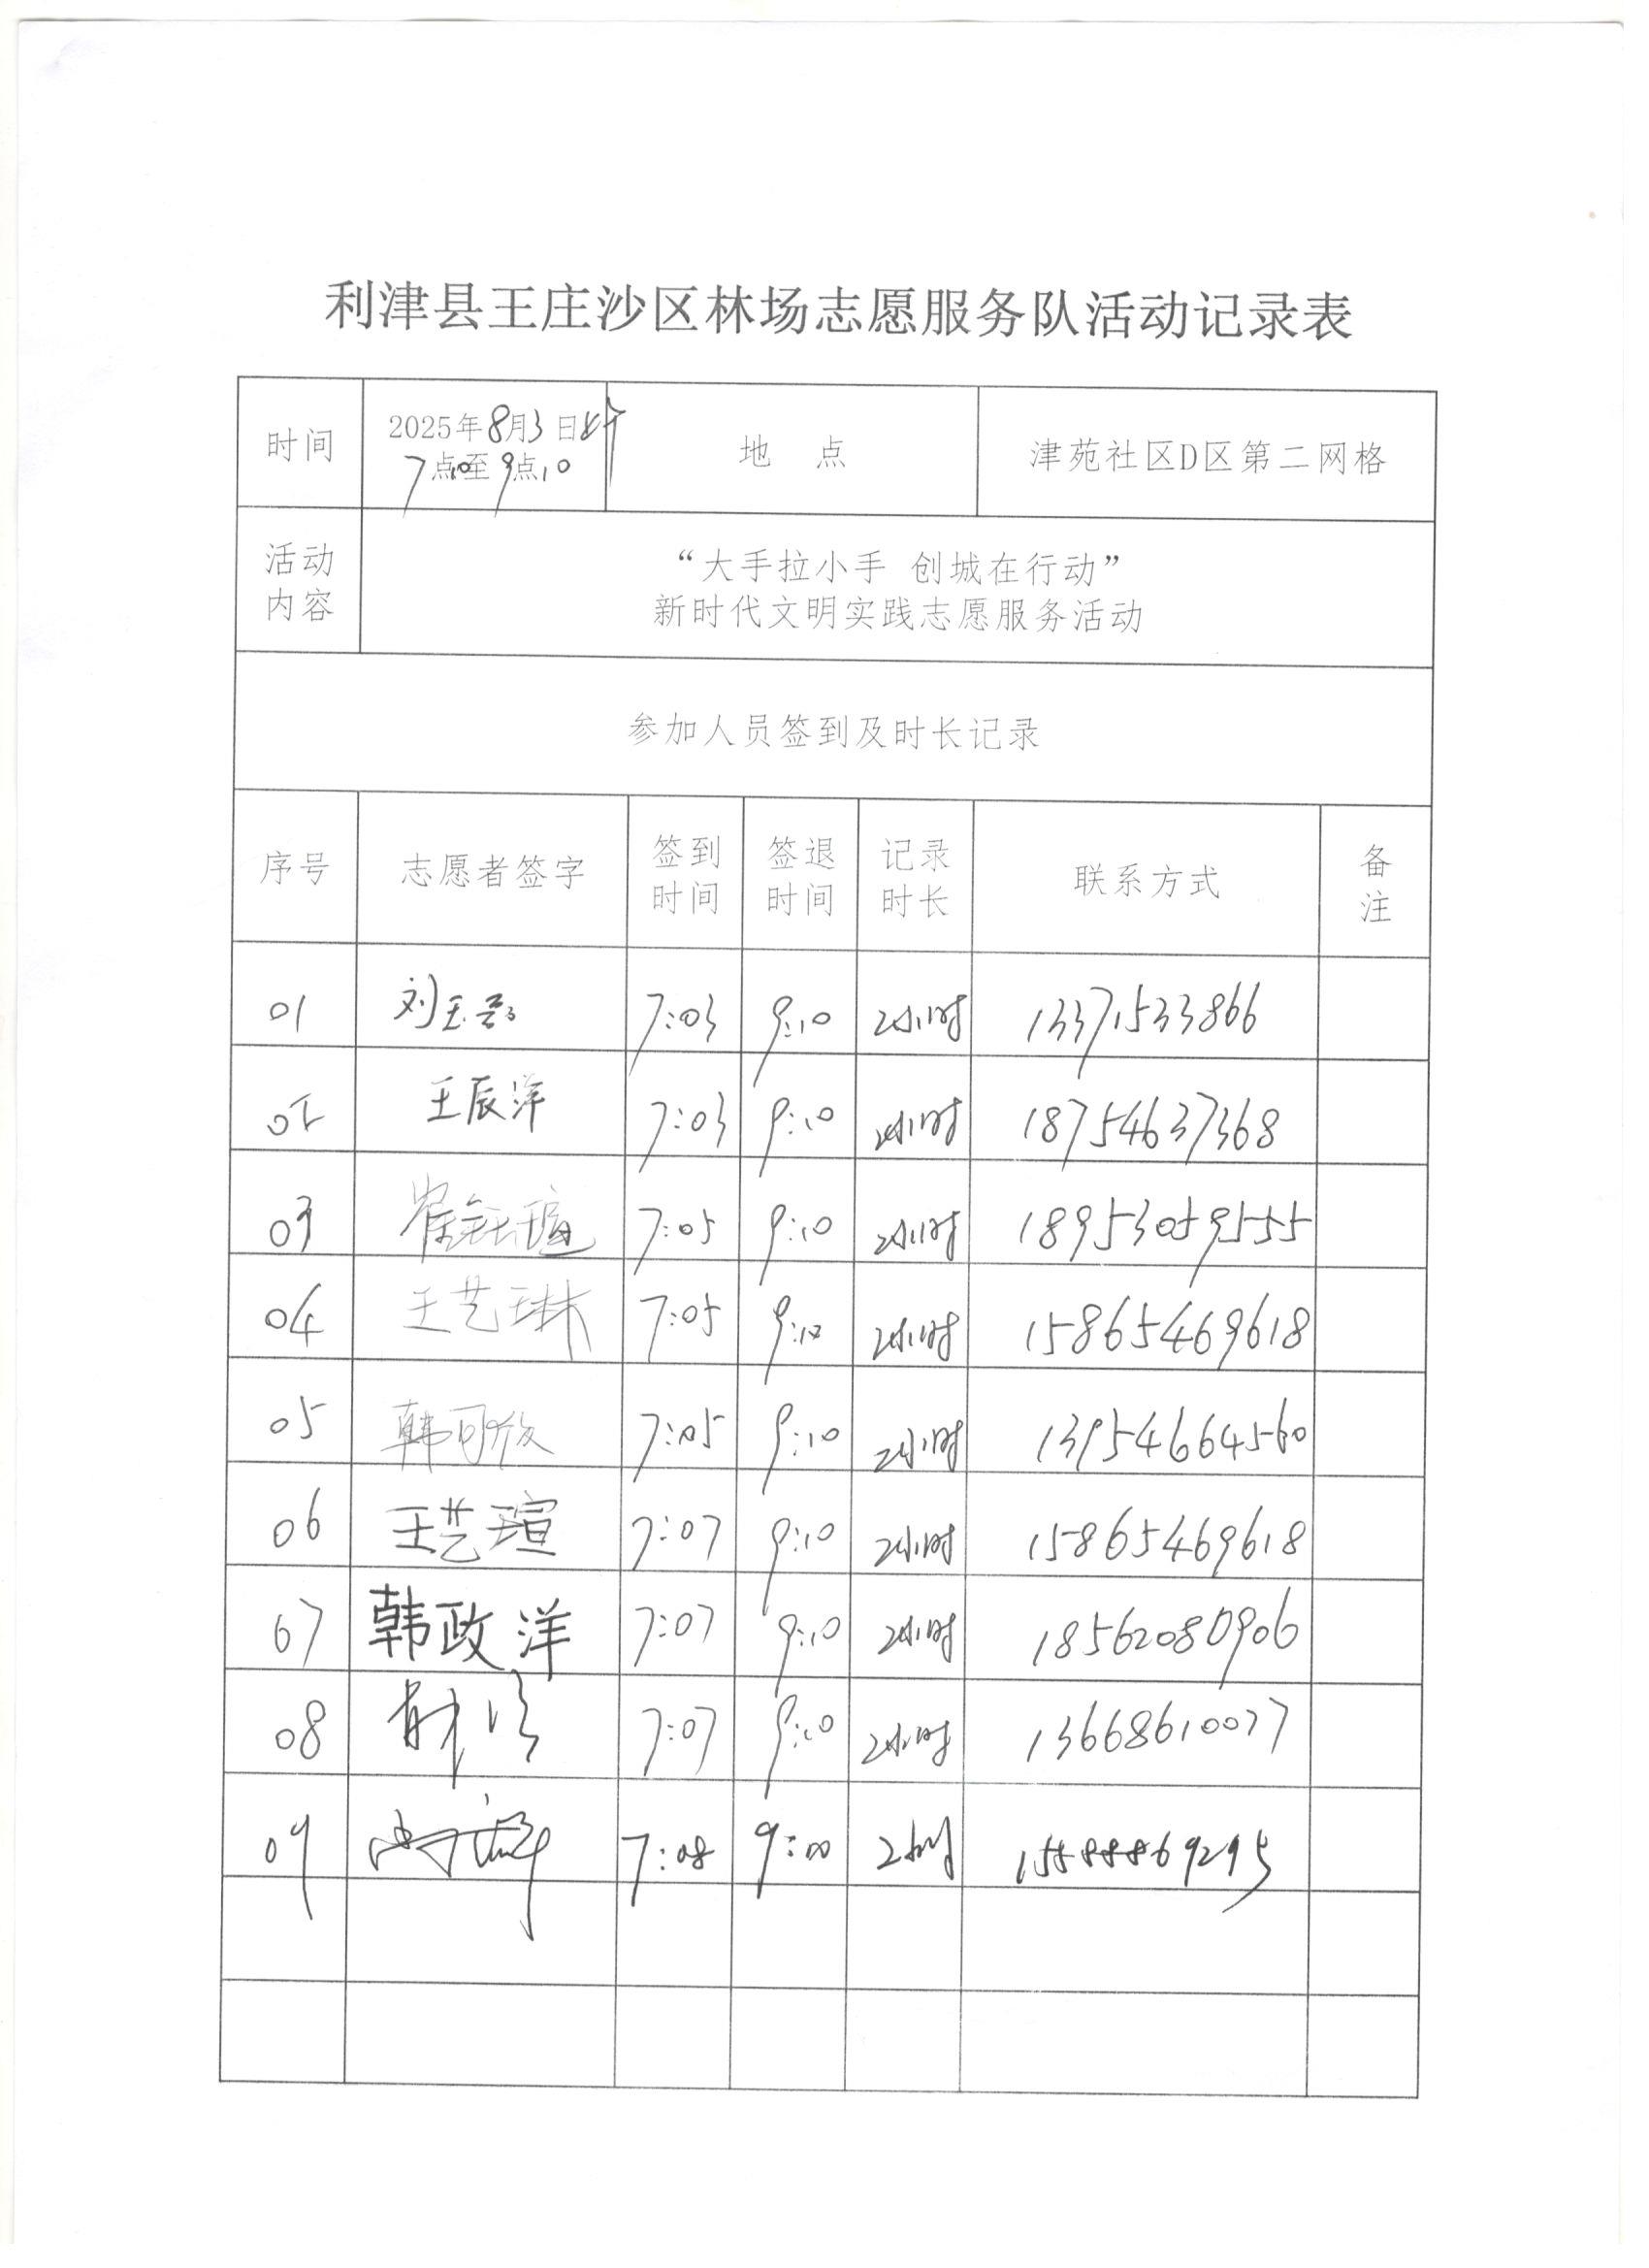 利津县王庄沙区林场志愿服务队活动记录表
时间 2025年8月3日上午 地 点 津苑社区D区第二网格
7点10至9点10
活动 “大手拉小手 创城在行动”
内容 新时代文明实践志愿服务活动
参加人员签到及时长记录
序号 志愿者签字 签到时间 签退时间 记录时长 联系方式 备注
01 刘玉 7:03 9:10 2小时 13371533866
02 王辰洋 7:03 9:10 2小时 18754637368
03 崔钰瑄 7:05 9:10 2小时 18953059555
04 王艺琳 7:05 9:10 2小时 15865469618
05 韩 7:05 9:10 2小时 13954664560
06 王艺瑄 7:07 9:10 2小时 15865469618
07 韩政洋 7:07 9:10 2小时 18562080906
08 7:07 9:10 2小时 13668610077
09 7:08 9:10 2小时 15588869295